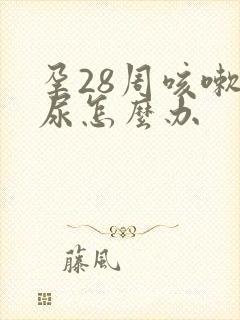 孕28周咳嗽
尿怎麼办
藤風